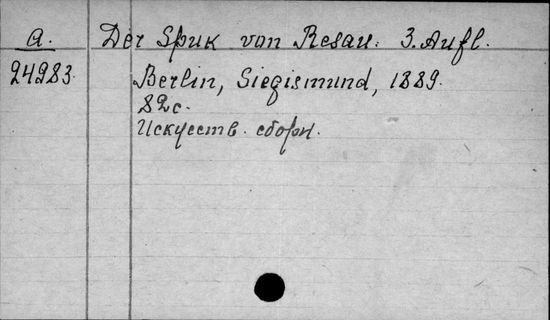 a. Der Spuk von Resau. 3. Aufl.
24983. Berlin, Siegismund, 1889.
82с.
Искусств. сборн.